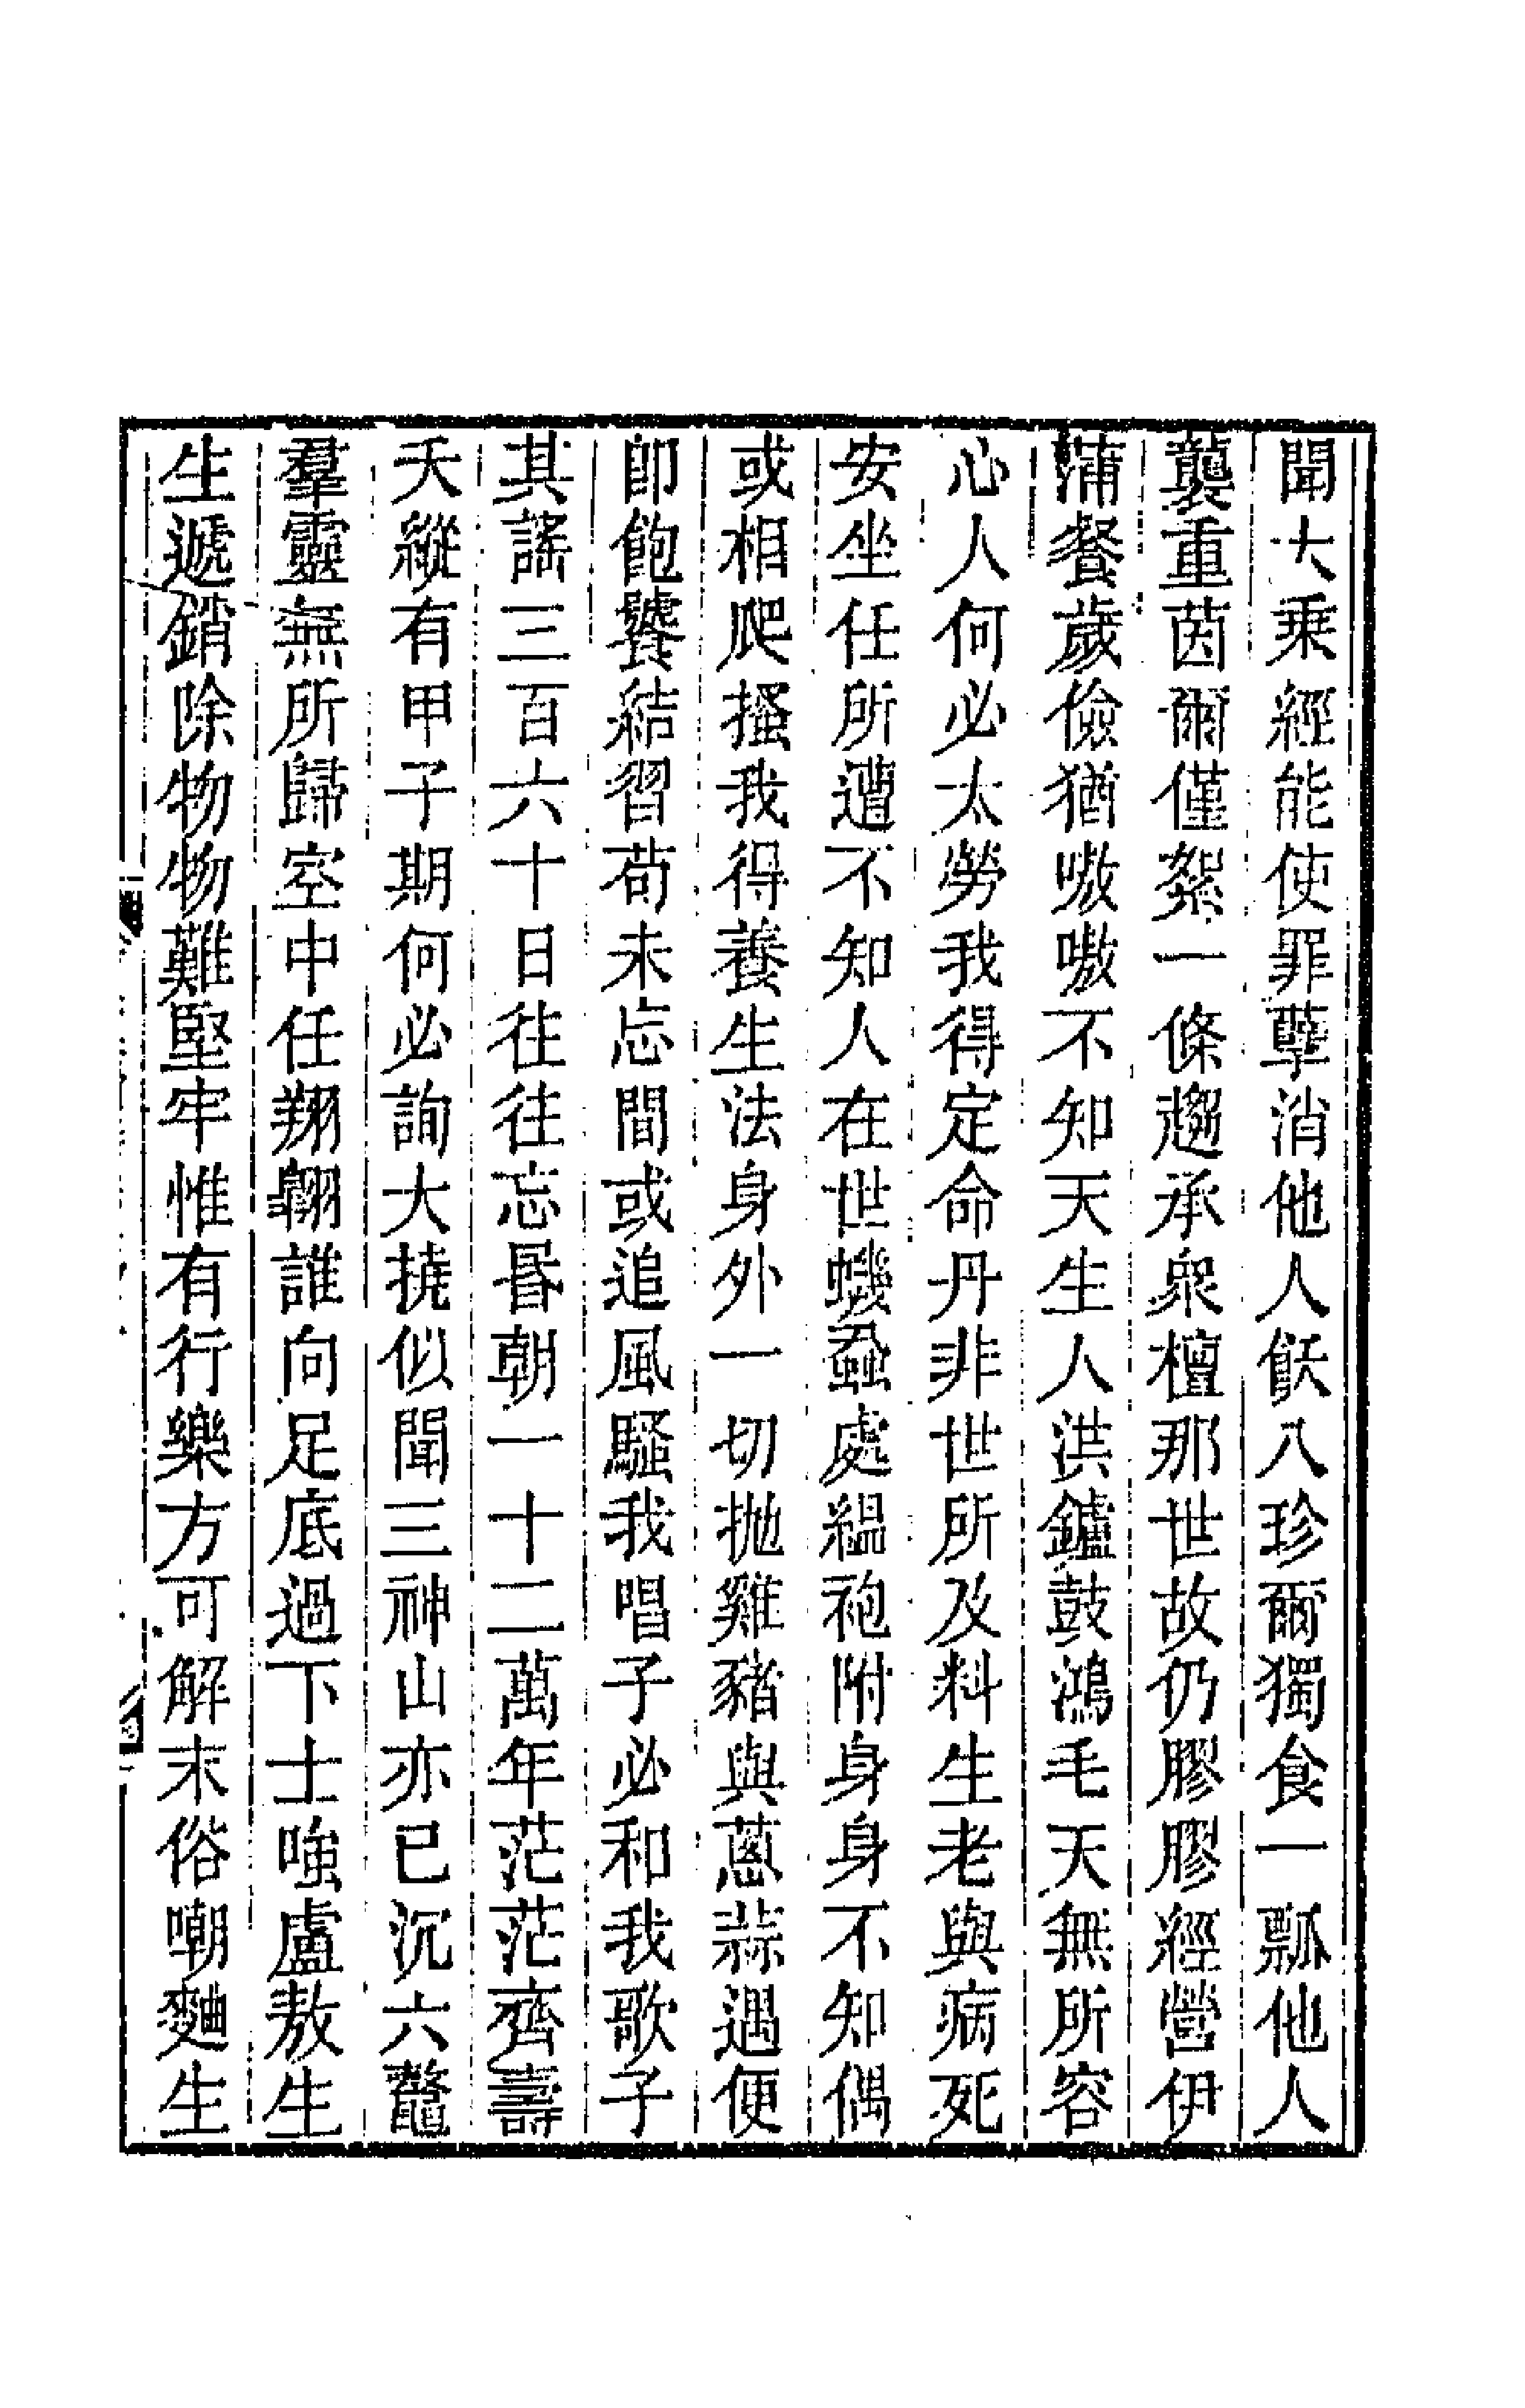 聞大乘經能使罪孽消他人飫八珍爾獨食一瓢他人
襲重茵爾僅絮一條趨承衆檀那世故仍膠膠經營伊
蒲餐歲儉猶嗷嗷不知天生人洪鑪鼓鴻毛天無所容
心人何必太勞我得定命丹非世所及料生老與病死
安坐任所遭不知人在世蟣蝨處縕袍附身身不知偶
或相爬搔我得養生法身外一切拋雞豬與蔥蒜遇便
卽飽饕結習苟未忘間或追風騷我唱子必和我歌子
其謠三百六十日往往忘昬朝一十二萬年茫茫齊壽
夭縱有甲子期何必詢大撓似聞三神山亦已沉六鼇
羣靈無所歸空中任翔翱誰向足底過下士嗤盧敖生
生遞銷除物物難堅牢惟有行樂方可解末俗嘲麯生